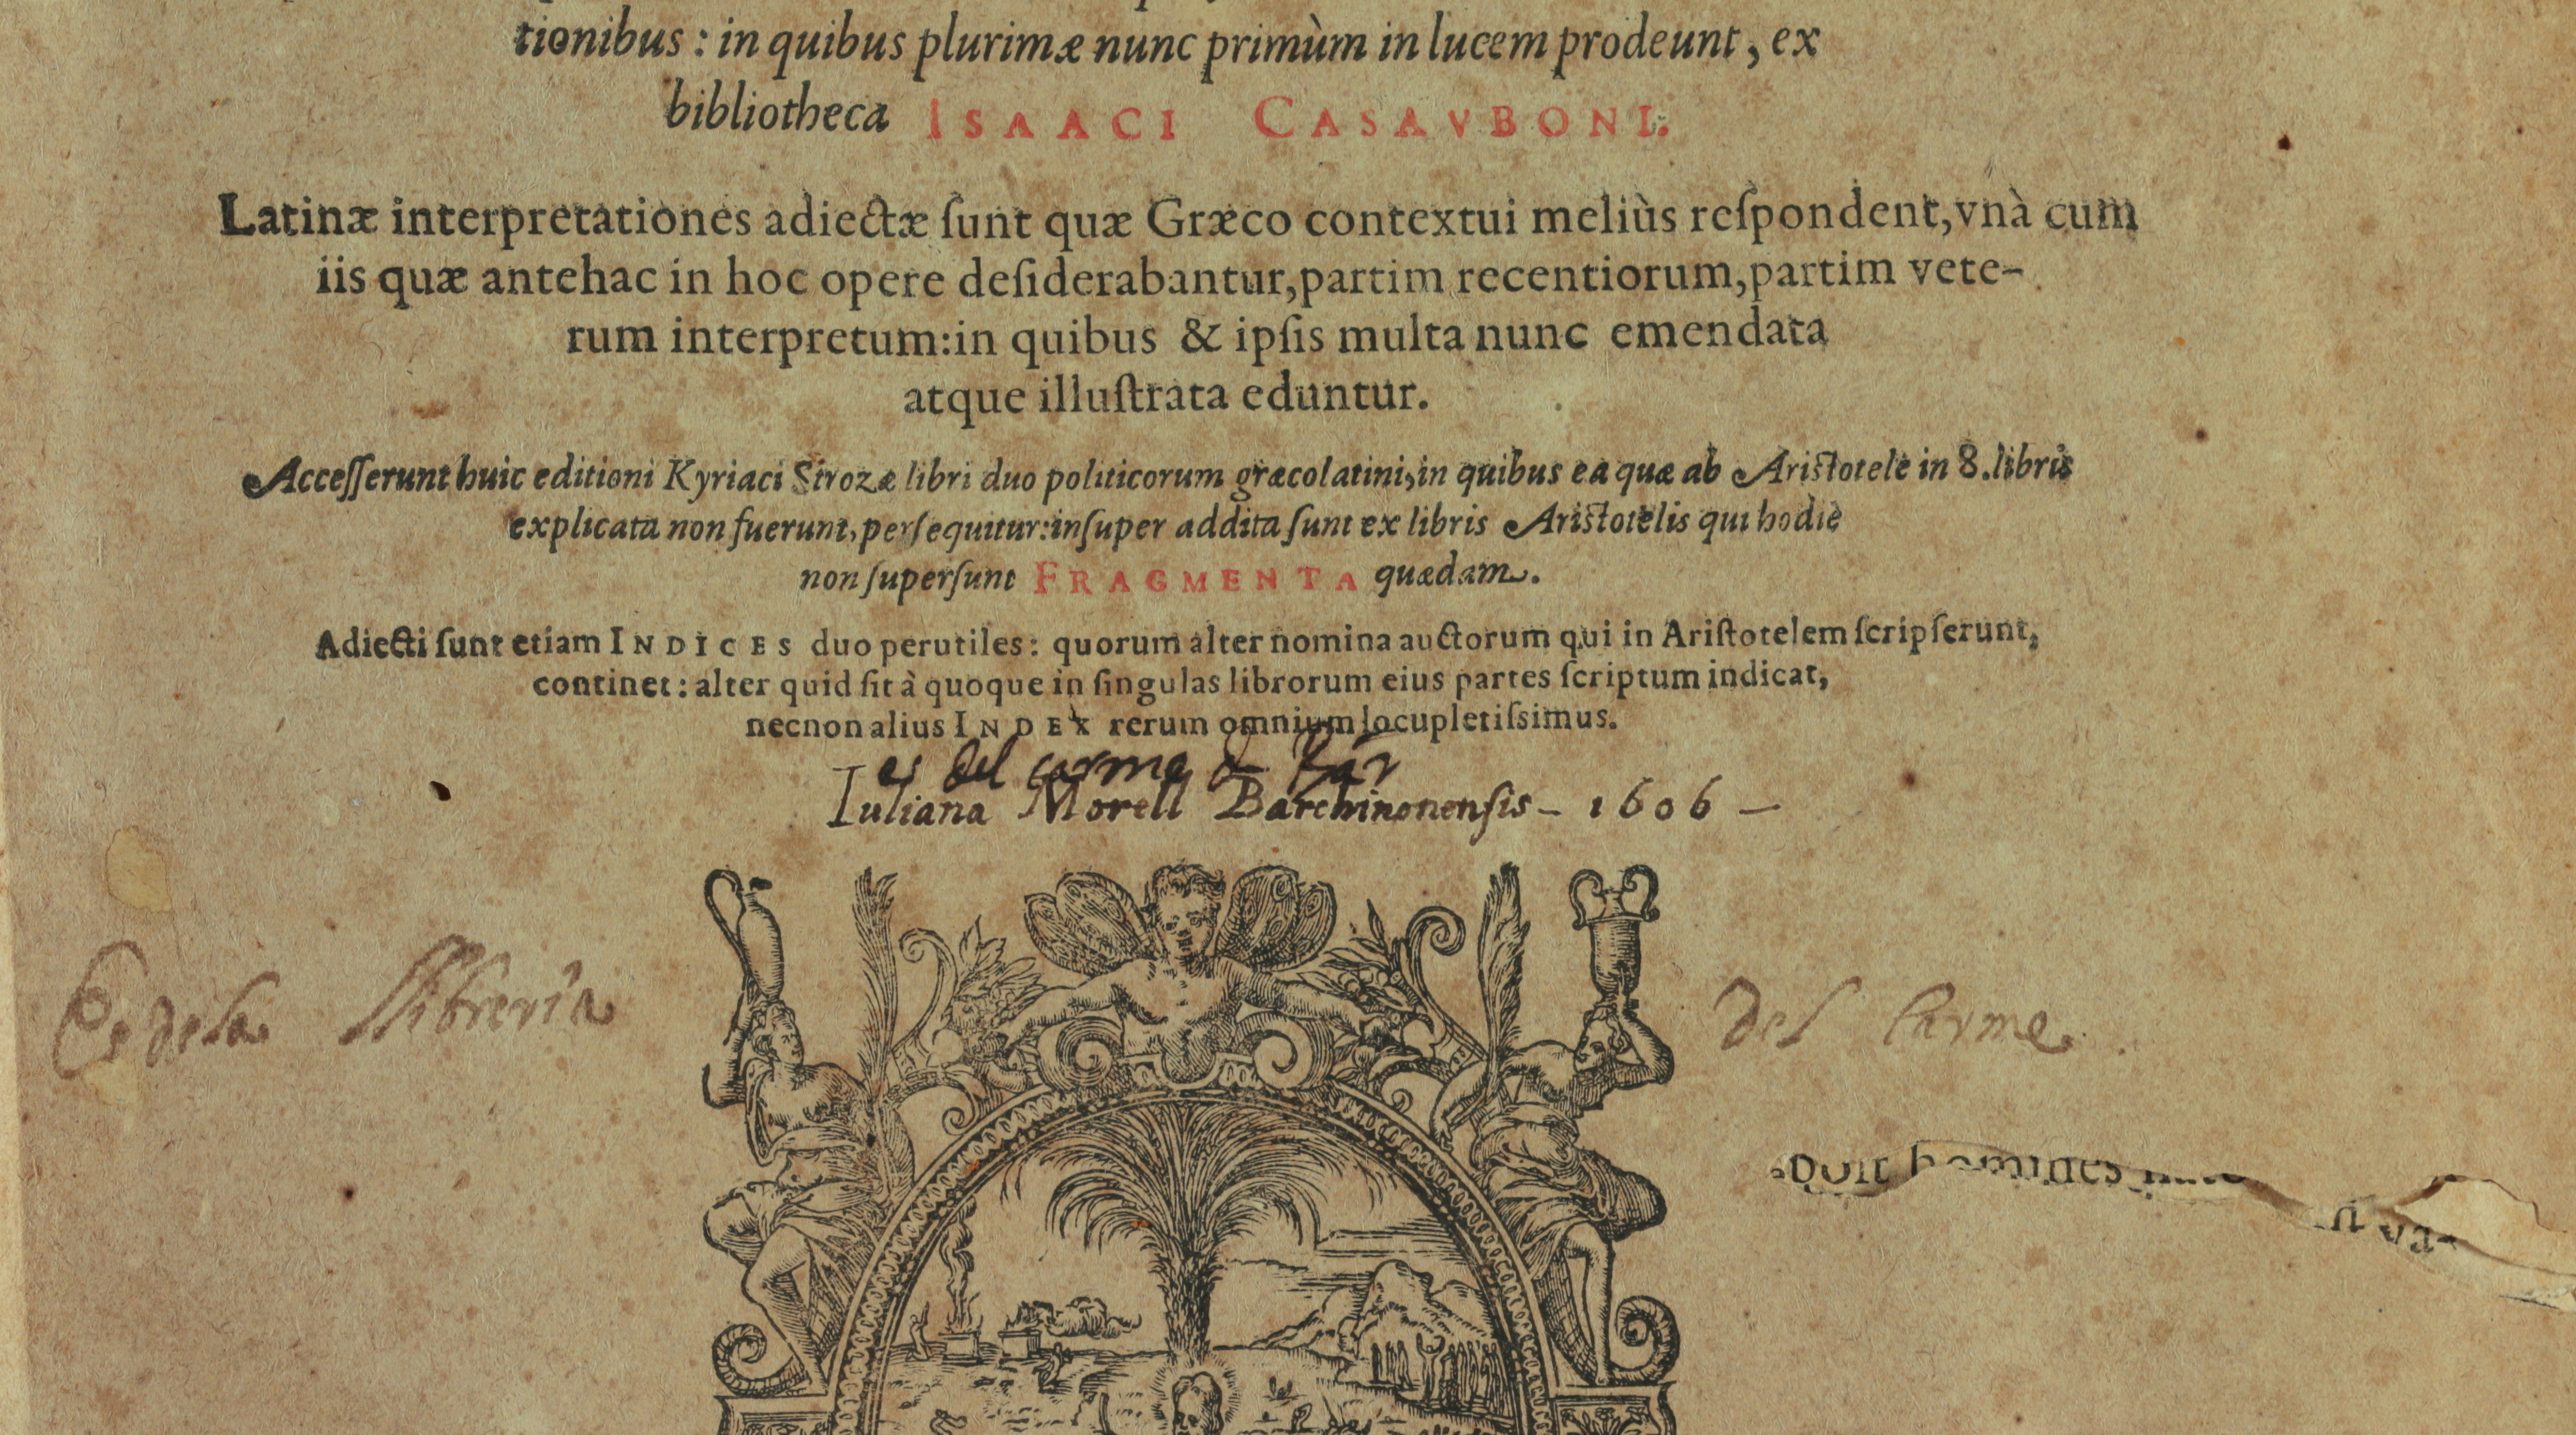 tionibus : in quibus plurimæ nunc primùm in lucem prodeunt, ex
bibliotheca ISAACI CASAVBONI.
Latinæ interpretationes adiectæ ſunt quæ Græco contextui meliùs reſpondent, vnà cum
iis quæ antehac in hoc opere deſiderabantur, partim recentiorum, partim vete-
rum interpretum: in quibus & ipſis multa nunc emendata
atque illuſtrata eduntur.
Acceſſerunt huic editioni Kyriaci Strozæ libri duo politicorum græcolatini, in quibus ea quæ ab Ariſtotele in 8. libris
explicata non fuerunt, perſequitur: inſuper addita ſunt ex libris Ariſtotelis qui hodie
non ſuperſunt FRAGMENTA quædam.
Adiecti ſunt etiam INDICES duo perutiles: quorum alter nomina auctorum qui in Ariſtotelem ſcripſerunt,
continet: alter quid ſit à quoque in ſingulas librorum eius partes ſcriptum indicat,
necnon alius INDEX rerum omnium locupletiſsimus.
es del carme d
Iuliana Morell Barchinonensis - 1606 -
Es dela llibreria del Carme
homines